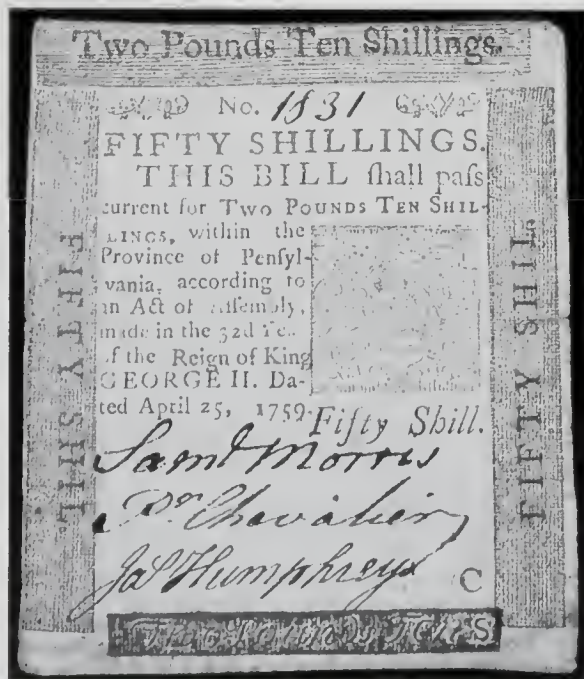 Two Pounds Ten Shillings.
No. 1831
FIFTY SHILLINGS.
THIS BILL shall pass
current for TWO POUNDS TEN SHIL-
LINGS, within the
Province of Pensyl-
vania, according to
an Act of Assembly,
made in the 32d Year
of the Reign of King
GEORGE II. Da-
ted April 25, 1759.
Fifty Shill.
FIFTY SHIL
FIFTY SHIL
Saml Morris
Pr Chevalier
Jas Humphreys
C
Two Pounds Ten S